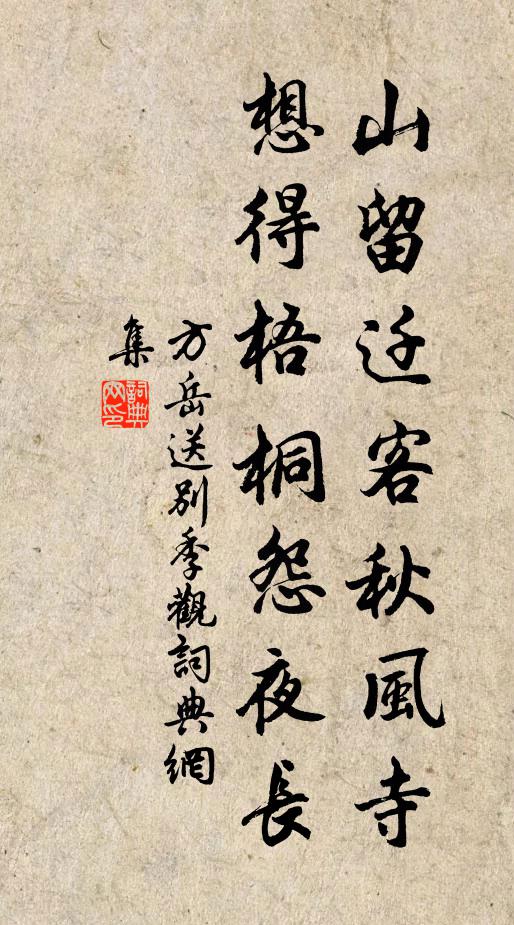 山留迁客秋風寺
想得梧桐怨夜長
方岳送別季觀詞典網
集
詞典
网印